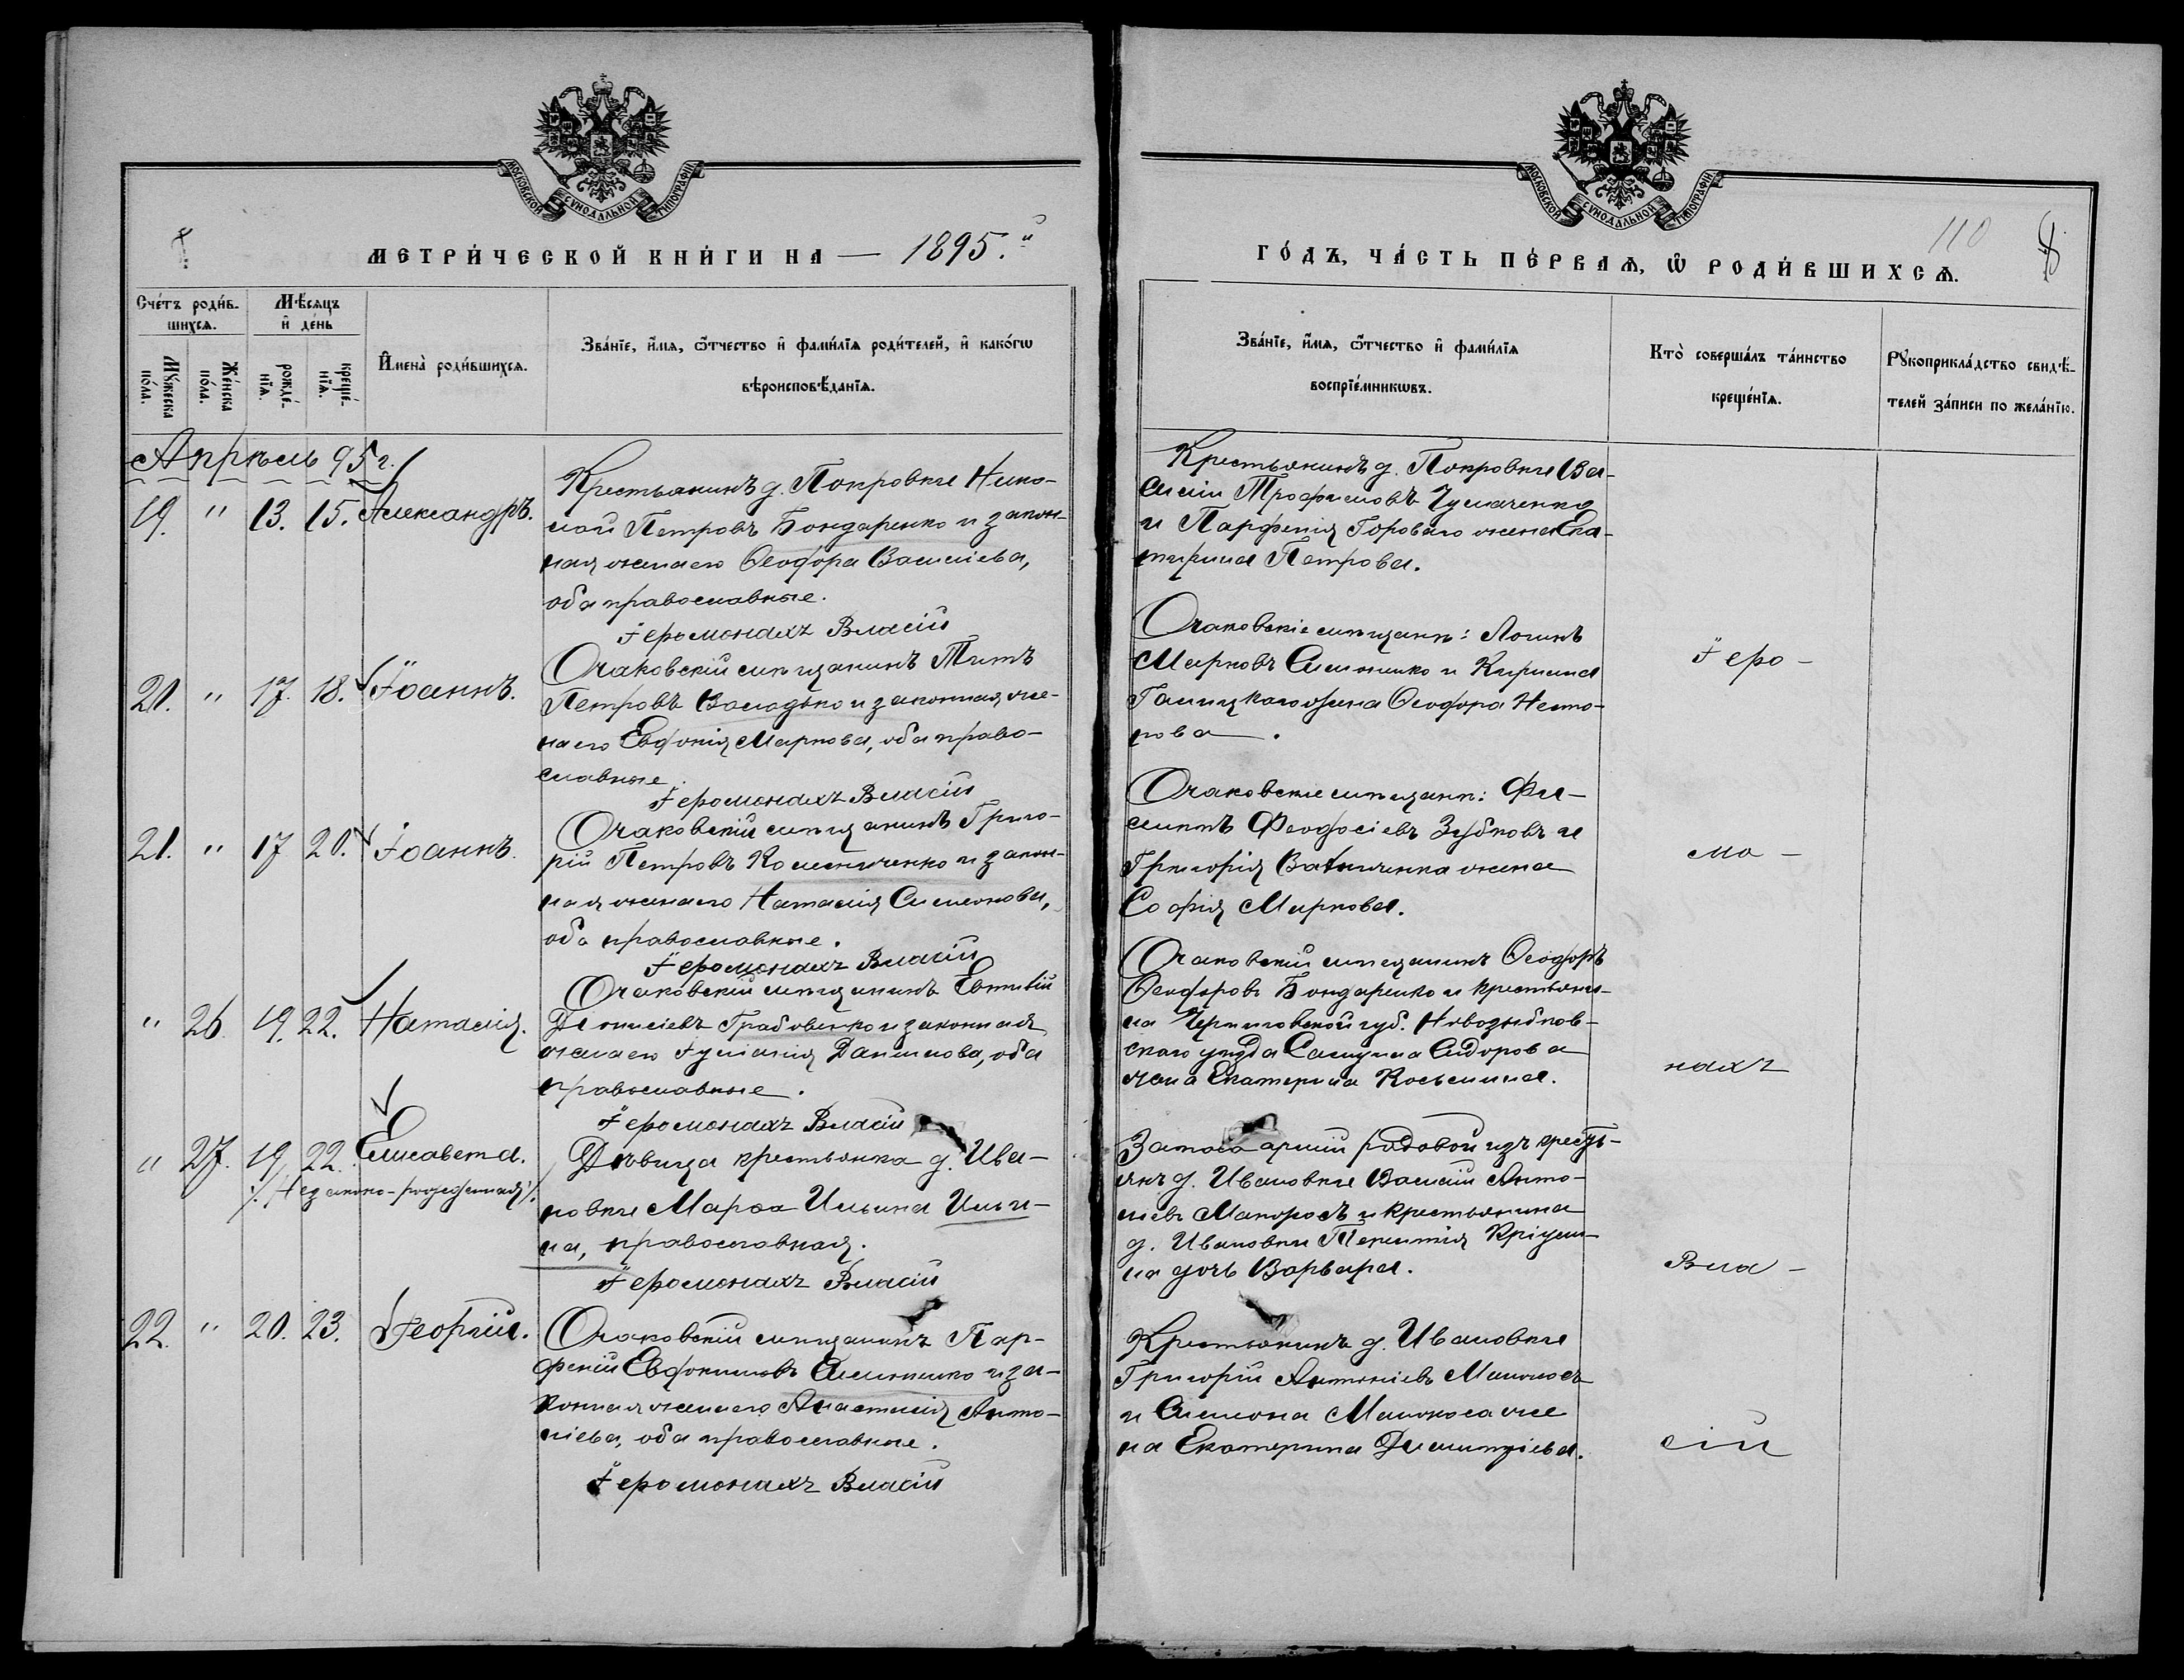 МОСКОВСКОЙ СѴНОДАЛЬНОЙ ТИПОГРАФІИ
МЕТРИ́ЧЕСКОЙ КНИ́ГИ НА — 1895.й
Сче́тъ роди́в-
шихсѧ.
Мѣ́сѧцъ
и҆ де́нь
Мꙋ́жеска
по́ла.
Же́нска
по́ла.
рожде́-
нїѧ.
креще́-
нїѧ.
И҆мена̀ роди́вшихсѧ.
Зва́нїе, и҆́мѧ, ѻ҆́тчество и҆ фами́лїѧ роди́телей, и҆ како́гѡ
вѣроисповѣ́данїѧ.
Апрѣль 95 г.
19. " 13. 15. Александръ.
Крестьянинъ д. Покровки Нико-
лай Петровъ Бондаренко и закон-
ная жена его Ѳеодора Васильева,
оба православные.
Іеромонахъ Власій
20. " 17. 18. Іоаннъ.
Очаковскій мѣщанинъ Титъ
Петровъ Валадько и законная же-
на его Евдокія Маркова, оба право-
славные.
Іеромонахъ Власій
21. " 17 20. Іоаннъ.
Очаковскій мѣщанинъ Григо-
рій Петровъ Коменниченко и закон-
ная жена его Наталія Симеонова,
оба православные.
Іеромонахъ Власій
" 26 19. 22. Наталія.
Очаковскій мѣщанинъ Евтихій
Діонисіевъ Грабовенко и законная
жена его Іуліанія Данилова, оба
православные.
Іеромонахъ Власій
" 27. 19. 22. Елисавета.
/. Незаконо-рожденная ./
Дѣвица крестьянка д. Ива-
новки Марѳа Ильина Ильи-
на, православная.
Іеромонахъ Власій
22. " 20. 23. Георгій.
Очаковскій мѣщанинъ Пар-
феній Евдокимовъ Симоненко и за-
конная жена его Анастасія Анто-
ніева, оба православные.
Іеромонахъ Власій
МОСКОВСКОЙ СѴНОДАЛЬНОЙ ТИПОГРАФІИ
110 8
ГО́ДЪ, ЧА́СТЬ ПЕ́РВАѦ, Ѡ҆ РОДИ́ВШИХСѦ.
Зва́нїе, и҆́мѧ, ѻ҆́тчество и҆ фами́лїѧ
воспрїе́мникѡвъ.
Кто̀ соверша́лъ та́инство
креще́нїѧ.
Рꙋкоприкла́дство свидѣ́-
телей за́писи по жела́нїю.
Крестьянинъ д. Покровки Ва-
силій Трофимовъ Чумаченко
и Парфенія Горового жена Ека-
терина Петрова.
Очаковскіе мѣщане: Логинъ
Марковъ Симоненко и Кирилла
Галицкаго жена Ѳеодора Несто-
рова.
Очаковскіе мѣщане: Фи-
липпъ Феодосіевъ Зубковъ и
Григорія жена
Софія Маркова.
Очаковскій мѣщанинъ Ѳеодоръ
Ѳеодоровъ Бондаренко и крестьяни-
на Черниговской губ. Новозыбков-
скаго уѣзда Самуила Сидорова
жена Екатерина Косьмина.
Запаса арміи рядовой изъ кресть-
янъ д. Ивановки Василій Анто-
ніевъ и крестьянина
д. Ивановки Терентія
на дочь Варвара.
Крестьянинъ д. Ивановки
Григорій Антоніевъ
и Симеона же
на Екатерина Димитріева.
Іеро-
мо-
нахъ
Вла-
сій